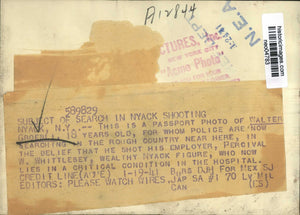 A12844
N.E.A.
1-24-41
CTURES, INC.
NEW YORK CITY
"Acme Photo"
historicimages.com
589829
SUBJECT OF SEARCH IN NYACK SHOOTING
NYACK, N.Y. -- THIS IS A PASSPORT PHOTO OF WALTER
18 YEARS OLD, FOR WHOM POLICE ARE NOW
SEARCHING IN THE ROUGH COUNTRY NEAR HERE, IN
THE BELIEF THAT HE SHOT HIS EMPLOYER, PERCIVAL
W. WHITTLESEY, WEALTHY NYACK FIGURE, WHO NOW
LIES IN A CRITICAL CONDITION IN THE HOSPITAL.
CREDIT LINE (ACME) 1-19-41 BURS DJH FOR MEX SJ
EDITORS: PLEASE WATCH WIRES JAP SA #1 70 LY MIL
CAN (CS)